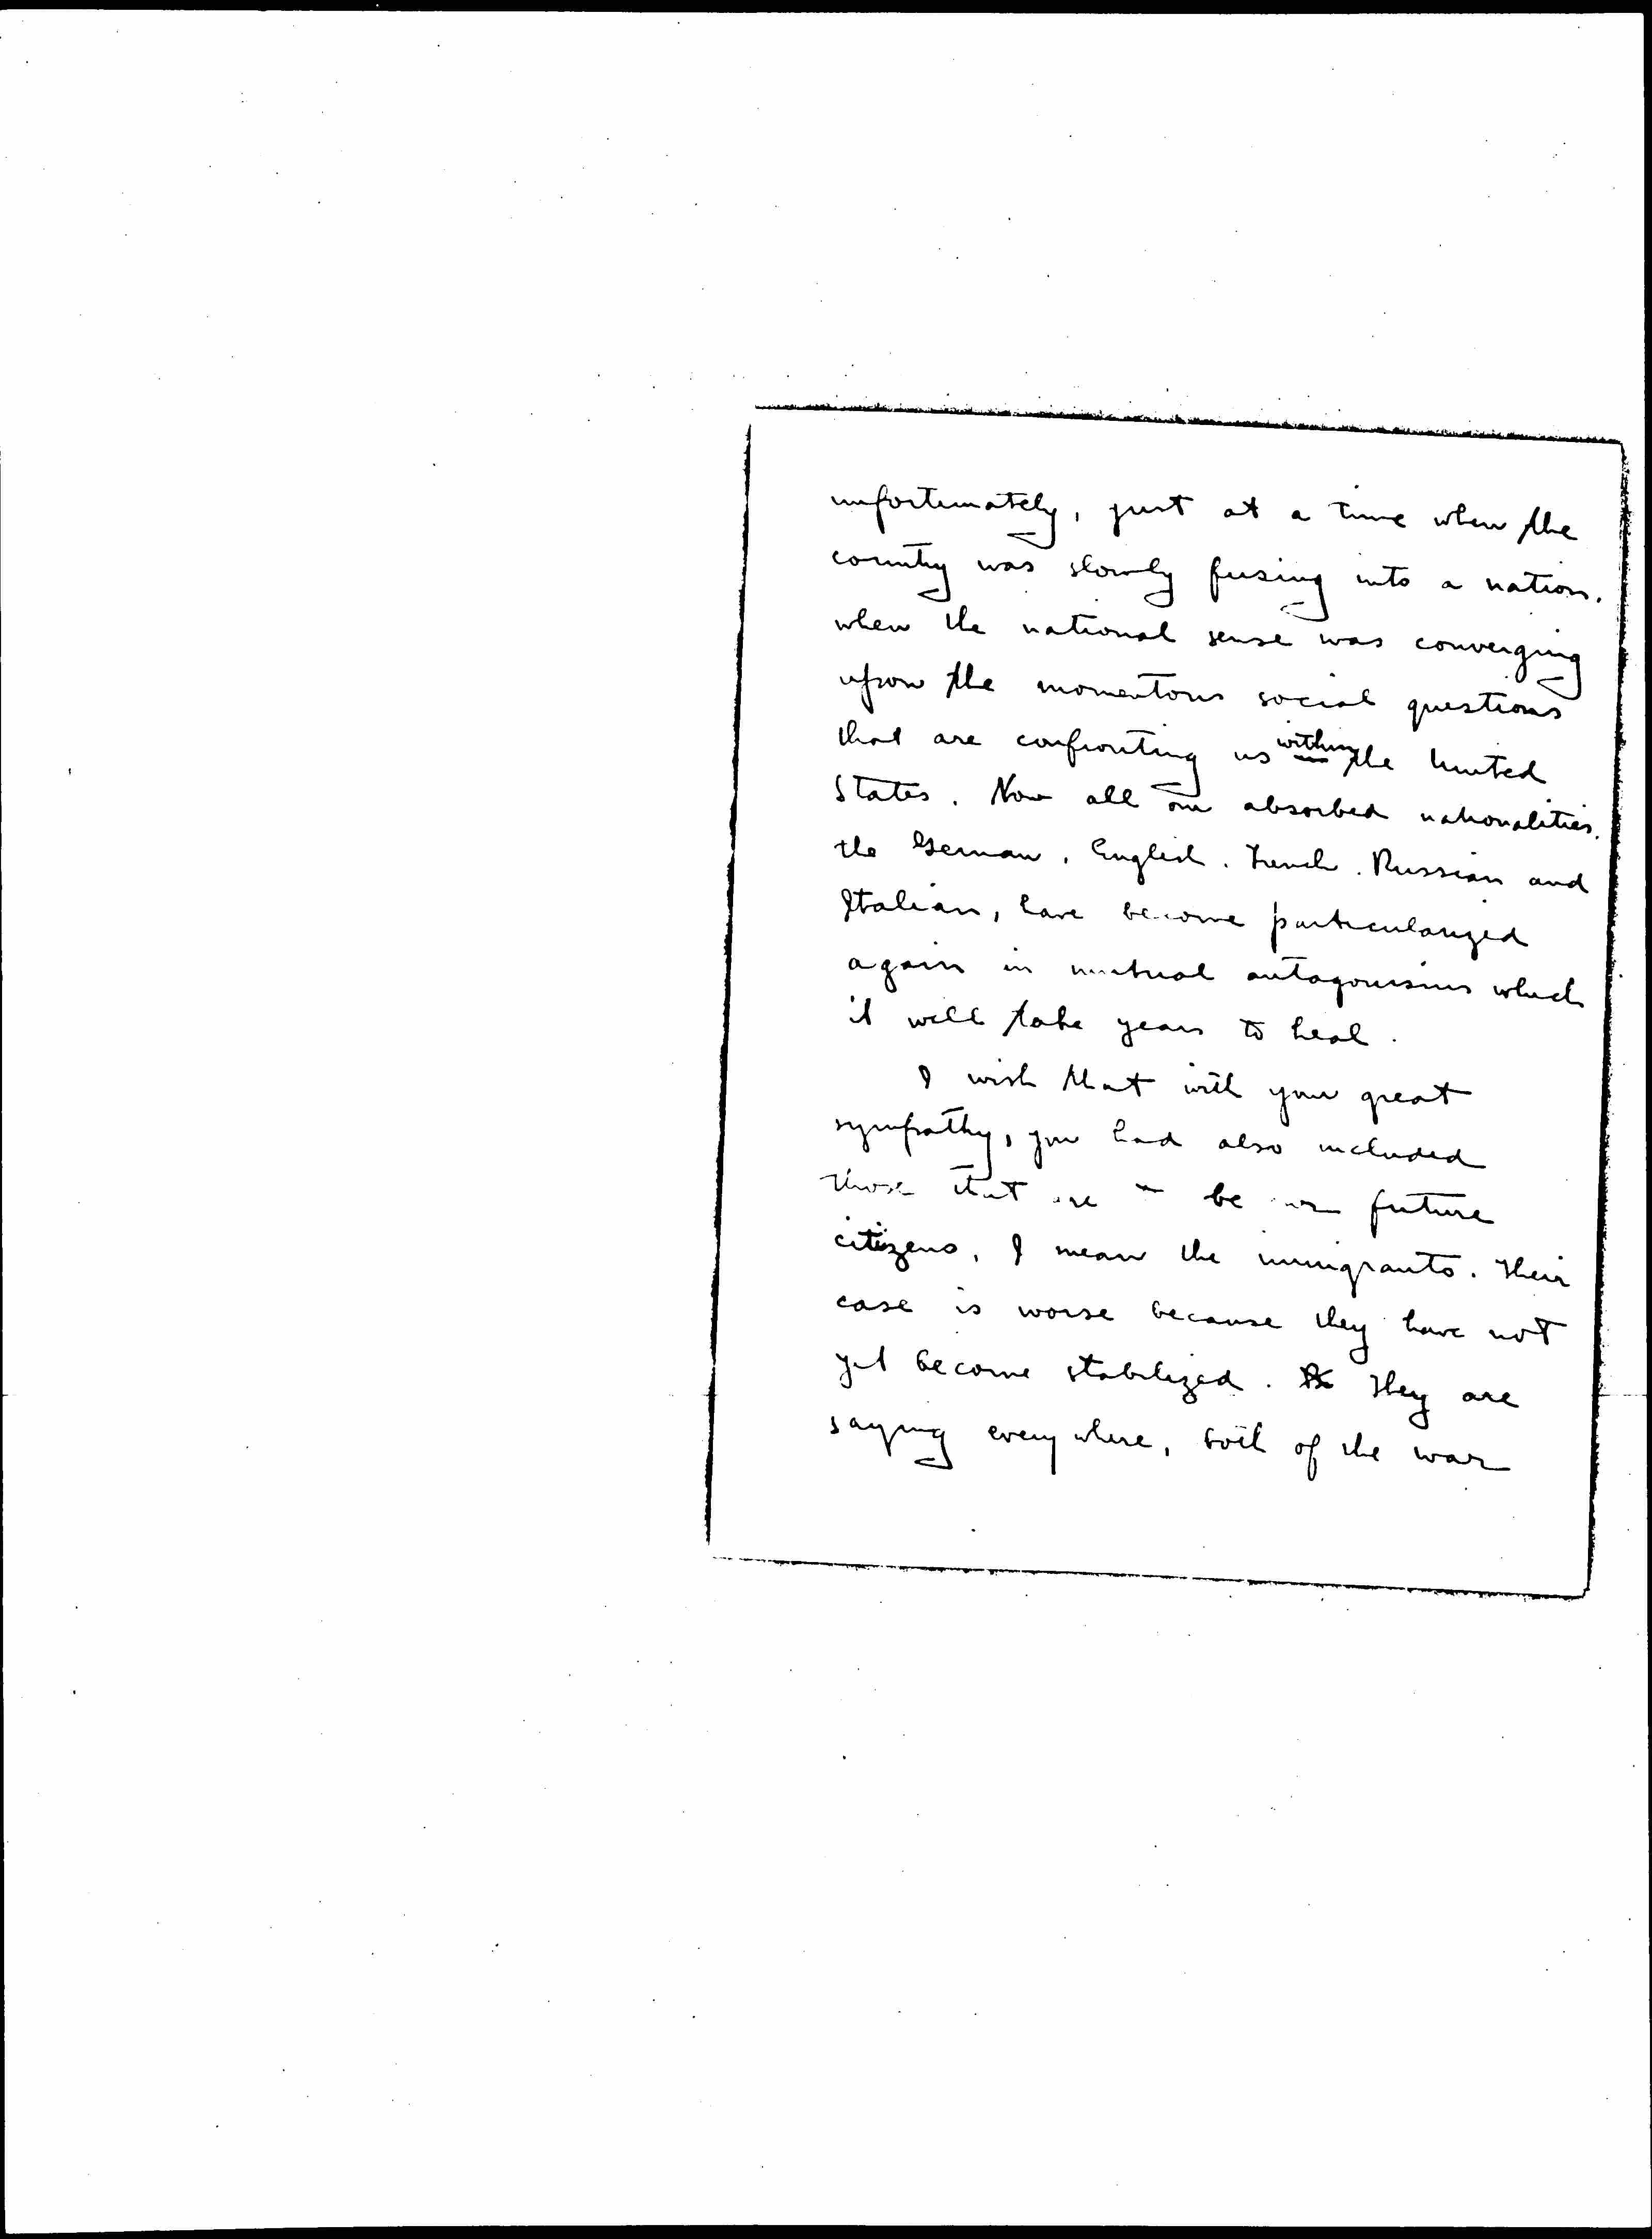 unfortunately, just at a time when the
country was slowly fusing into a nation,
when the national sense was converging
upon the momentous social questions
that are confronting us within the United
States. Now all our absorbed nationalities,
the German, English, French, Russian and
Italian, have become particularized
again in mutual antagonisms which
it will take years to heal.
I wish that with your great
sympathy, you had also included
those that are to be our future
citizens, I mean the immigrants. Their
case is worse because they have not
yet become stabilized. They are
saying everywhere, both of the war